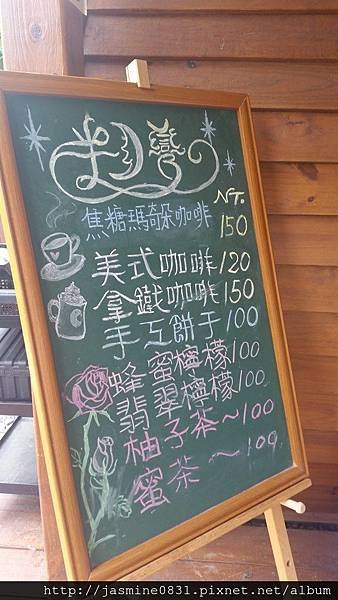 NT.
焦糖瑪奇朵咖啡 150
美式咖啡 120
拿鐵咖啡 150
手工餅干 100
蜂蜜檸檬 100
翡翠檸檬 100
柚子茶～100
蜜茶～100
http://jasmine0831.pixnet.net/album